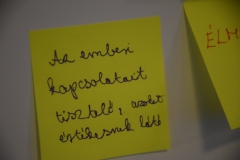 Az emberi
kapcsolatait
tisztelő, azokat
értékesnek látó
ÉLM